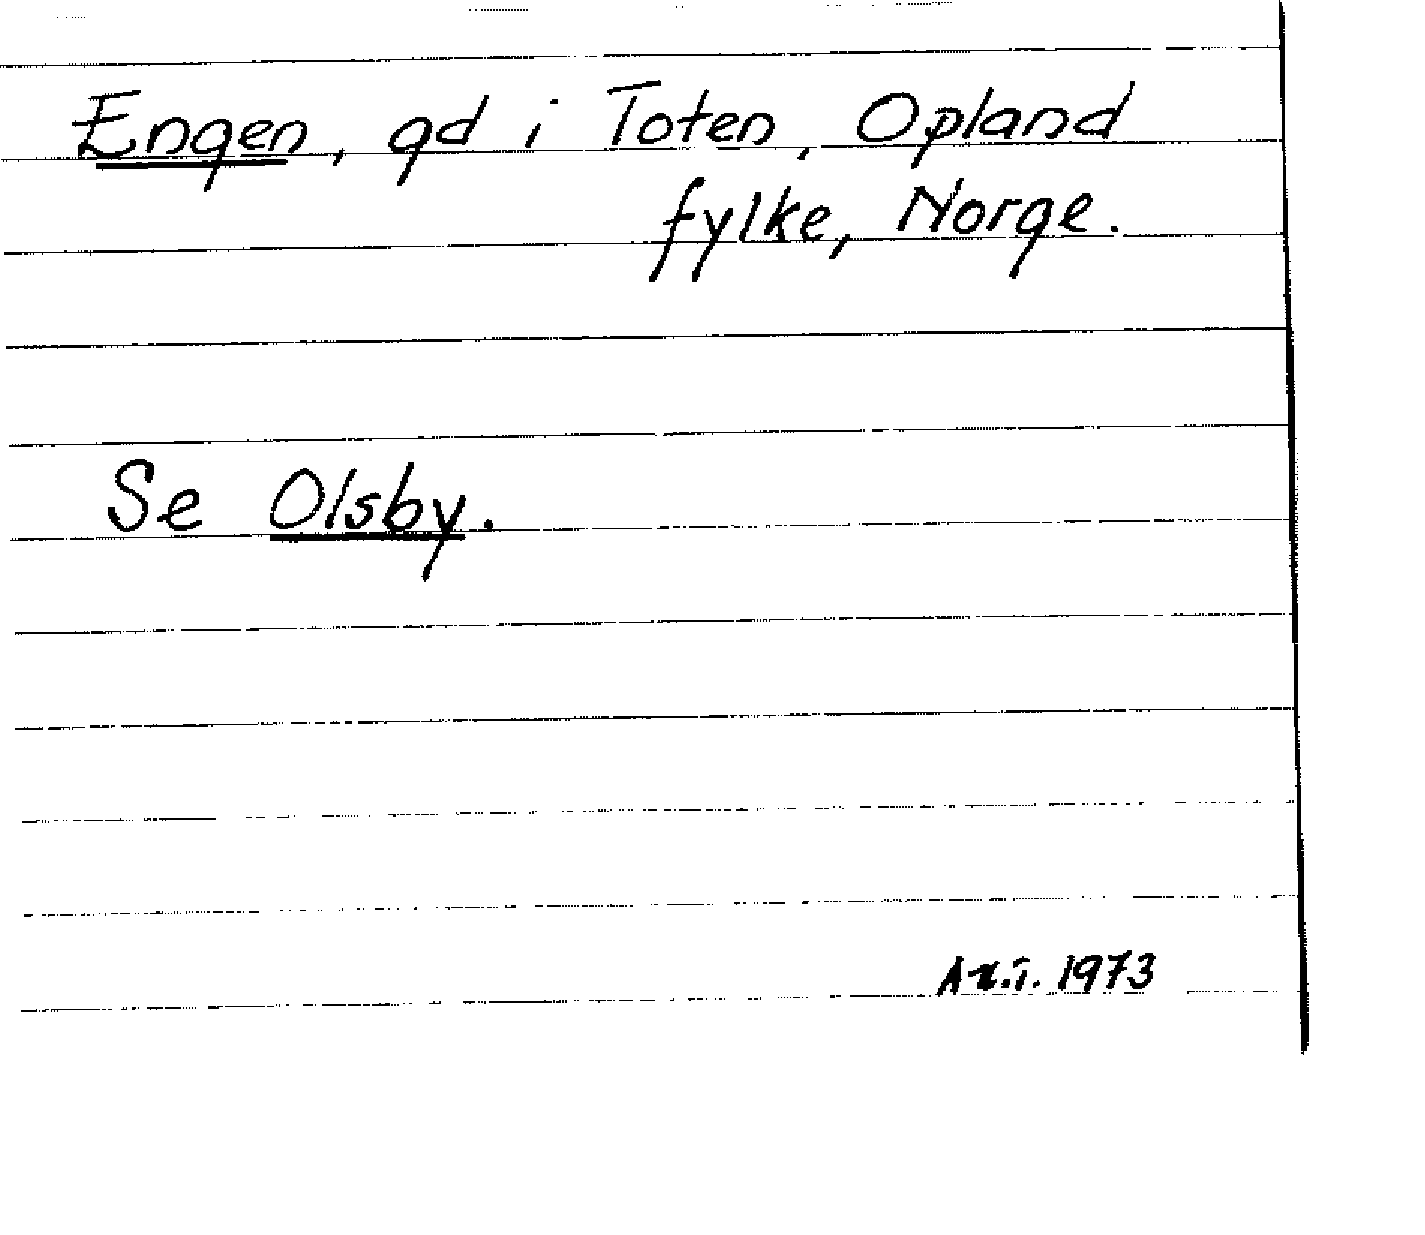 Engen, gd i Toten, Opland
fylke, Norge.
Se Olsby.
1973